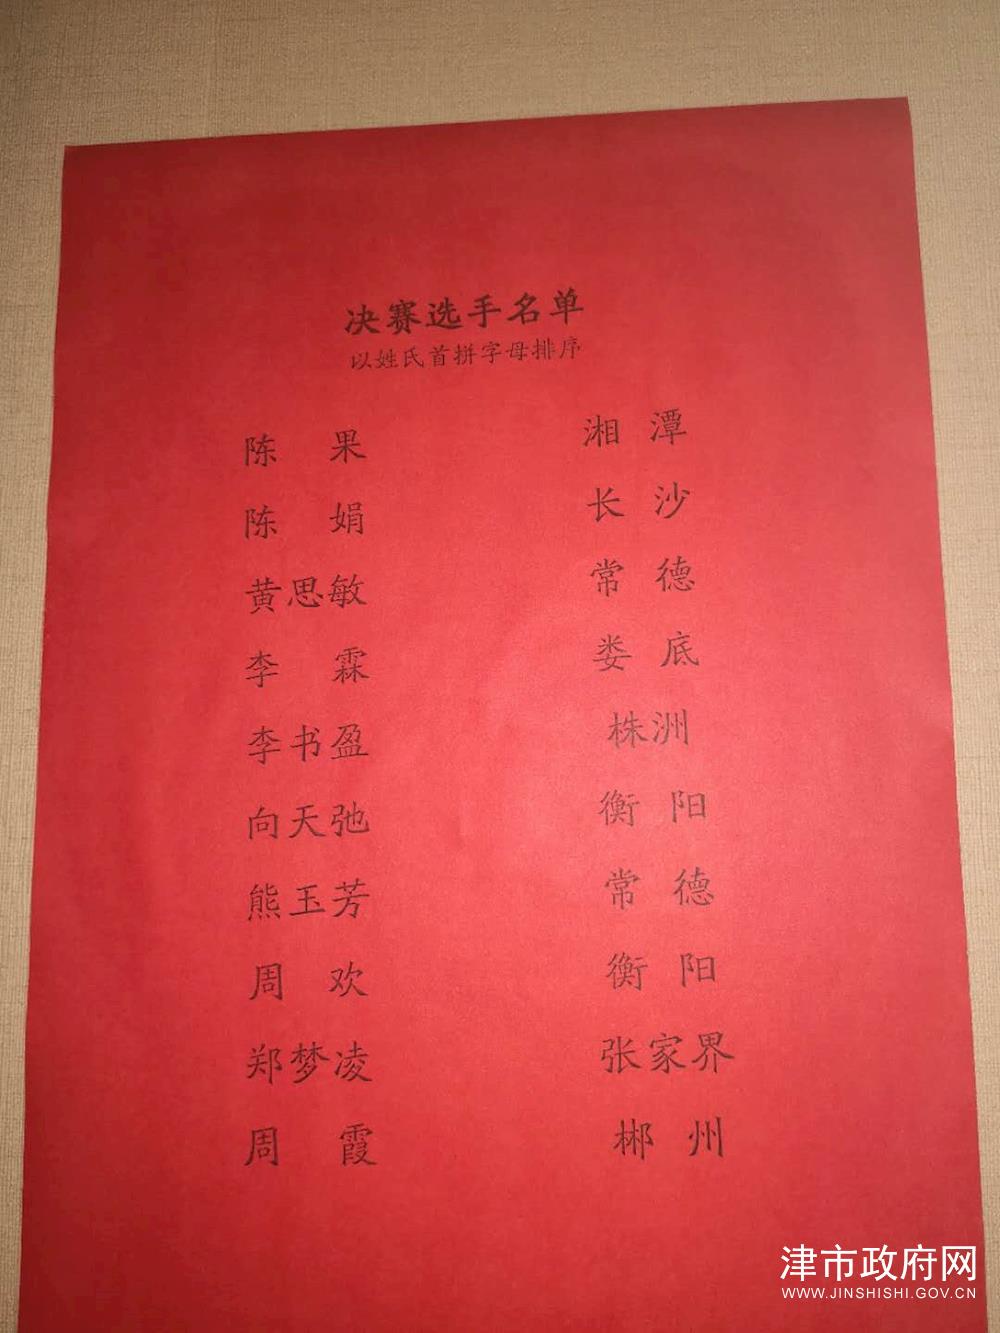 决赛选手名单
以姓氏首拼字母排序
陈 果 湘 潭
陈 娟 长 沙
黄思敏 常 德
李 霖 娄 底
李书盈 株洲
向天弛 衡 阳
熊玉芳 常 德
周 欢 衡 阳
郑梦凌 张家界
周 霞 郴 州
津市政府网
WWW.JINSHISHI.GOV.CN